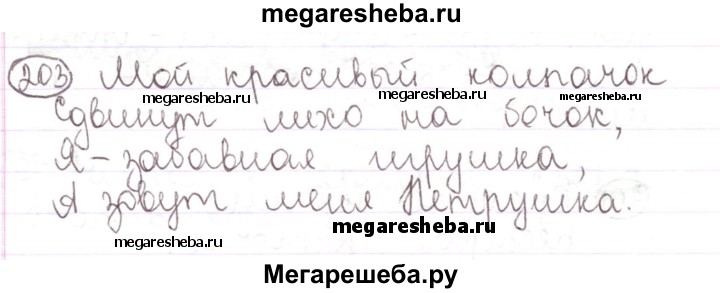 megaresheba.ru
203 Мой красивый колпачок
megaresheba.ru megaresheba.ru megaresheba.ru
Сдвинут лихо на бочок,
Я - забавная игрушка,
А зовут меня Петрушка.
megaresheba.ru megaresheba.ru
megaresheba.ru
Мегарешеба.ру